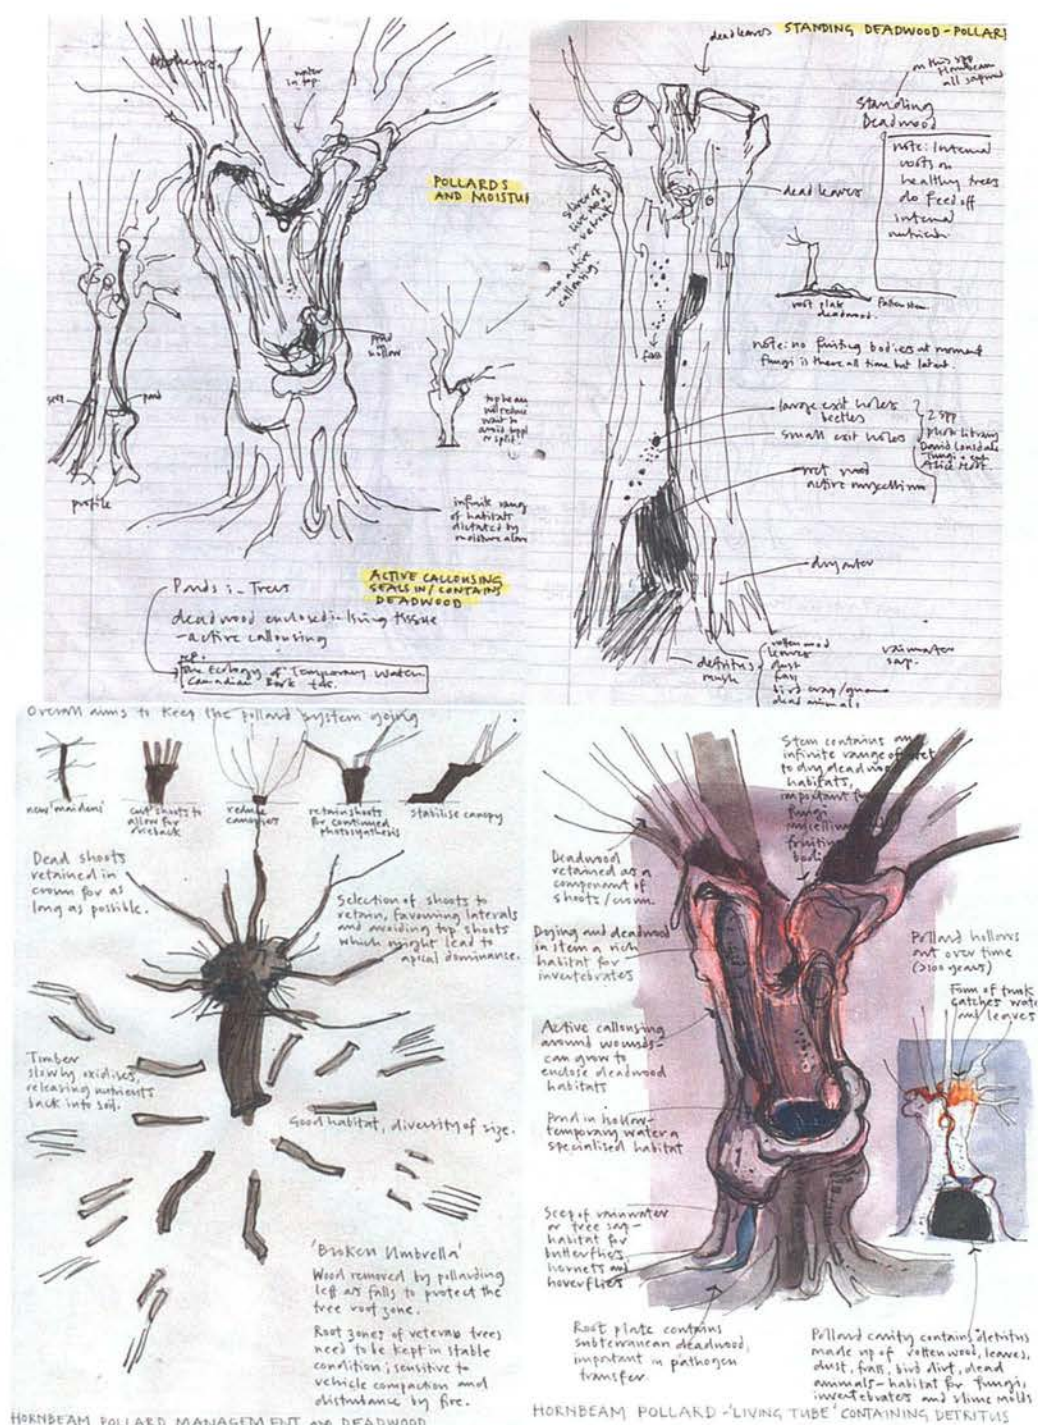 water
in top.
POLLARDS
AND MOISTU
pond
in
hollow
seep
pond
profile
infinite range
of habitats
dictated by
moisture alone
ACTIVE CALLOUSING
SEALS IN/CONTAINS
DEADWOOD
Ponds in Trees
deadwood enclosed in living tissue
-active callousing
The Ecology of Temporary Water
dead leaves
STANDING DEADWOOD - POLLAR
on this spp
Hornbeam
all sapwood
Standing
Deadwood
note: Internal
roots on
healthy trees
do feed off
internal
nutrients
dead leaves
slivers of
live wood
in retreat
-no active
callousing.
root plate
deadwood.
fallen stem
frass
note: no fruiting bodies at moment
fungi is there all time but latent.
large exit holes
beetles
small exit holes
2 spp
David Lonsdale
wet mud
active mycellium
dry outer
detritus
mush
rotten wood
leaves
dust
frass
bird crap/guano
dead animals
rainwater
sap.
Overall aims to keep the pollard system going
new 'maidens'
cut shoots to
allow for
dieback
reduce
canopies
retain shoots
for continued
photosynthesis
stabilise canopy
Dead shoots
retained in
crown for as
long as possible.
Selection of shoots to
retain, favouring laterals
and avoiding top shoots
which might lead to
apical dominance.
Timber
slowly oxidises,
releasing nutrients
back into soil.
Good habitat, diversity of size.
'Broken Umbrella'
Wood removed by pollarding
left as falls to protect the
tree root zone.
Root zones of veteran trees
need to be kept in stable
condition; sensitive to
vehicle compaction and
disturbance by fire.
HORNBEAM POLLARD MANAGEMENT and DEADWOOD
Stem contains an
infinite range of wet
to dry deadwood
habitats,
important for
fungi
mycellium
fruiting
bodies
Deadwood
retained as a
component of
shoots/crown.
Dying and deadwood
in stem a rich
habitat for
invertebrates
Active callousing
around wounds-
can grow to
enclose deadwood
habitats
Pond in hollow-
temporary water a
specialised habitat
Seep of rainwater
or tree sap-
habitat for
butterflies
hornets and
hoverflies
Root plate contains
subterranean deadwood,
important in pathogen
transfer
Pollard hollows
out over time
(>100 years)
Form of trunk
catches wate
and leaves
Pollard cavity contains detritus
made up of rotten wood, leaves,
dust, frass, bird dirt, dead
animals - habitat for fungi,
invertebrates and slime molds
HORNBEAM POLLARD -'LIVING TUBE' CONTAINING DETRITUS